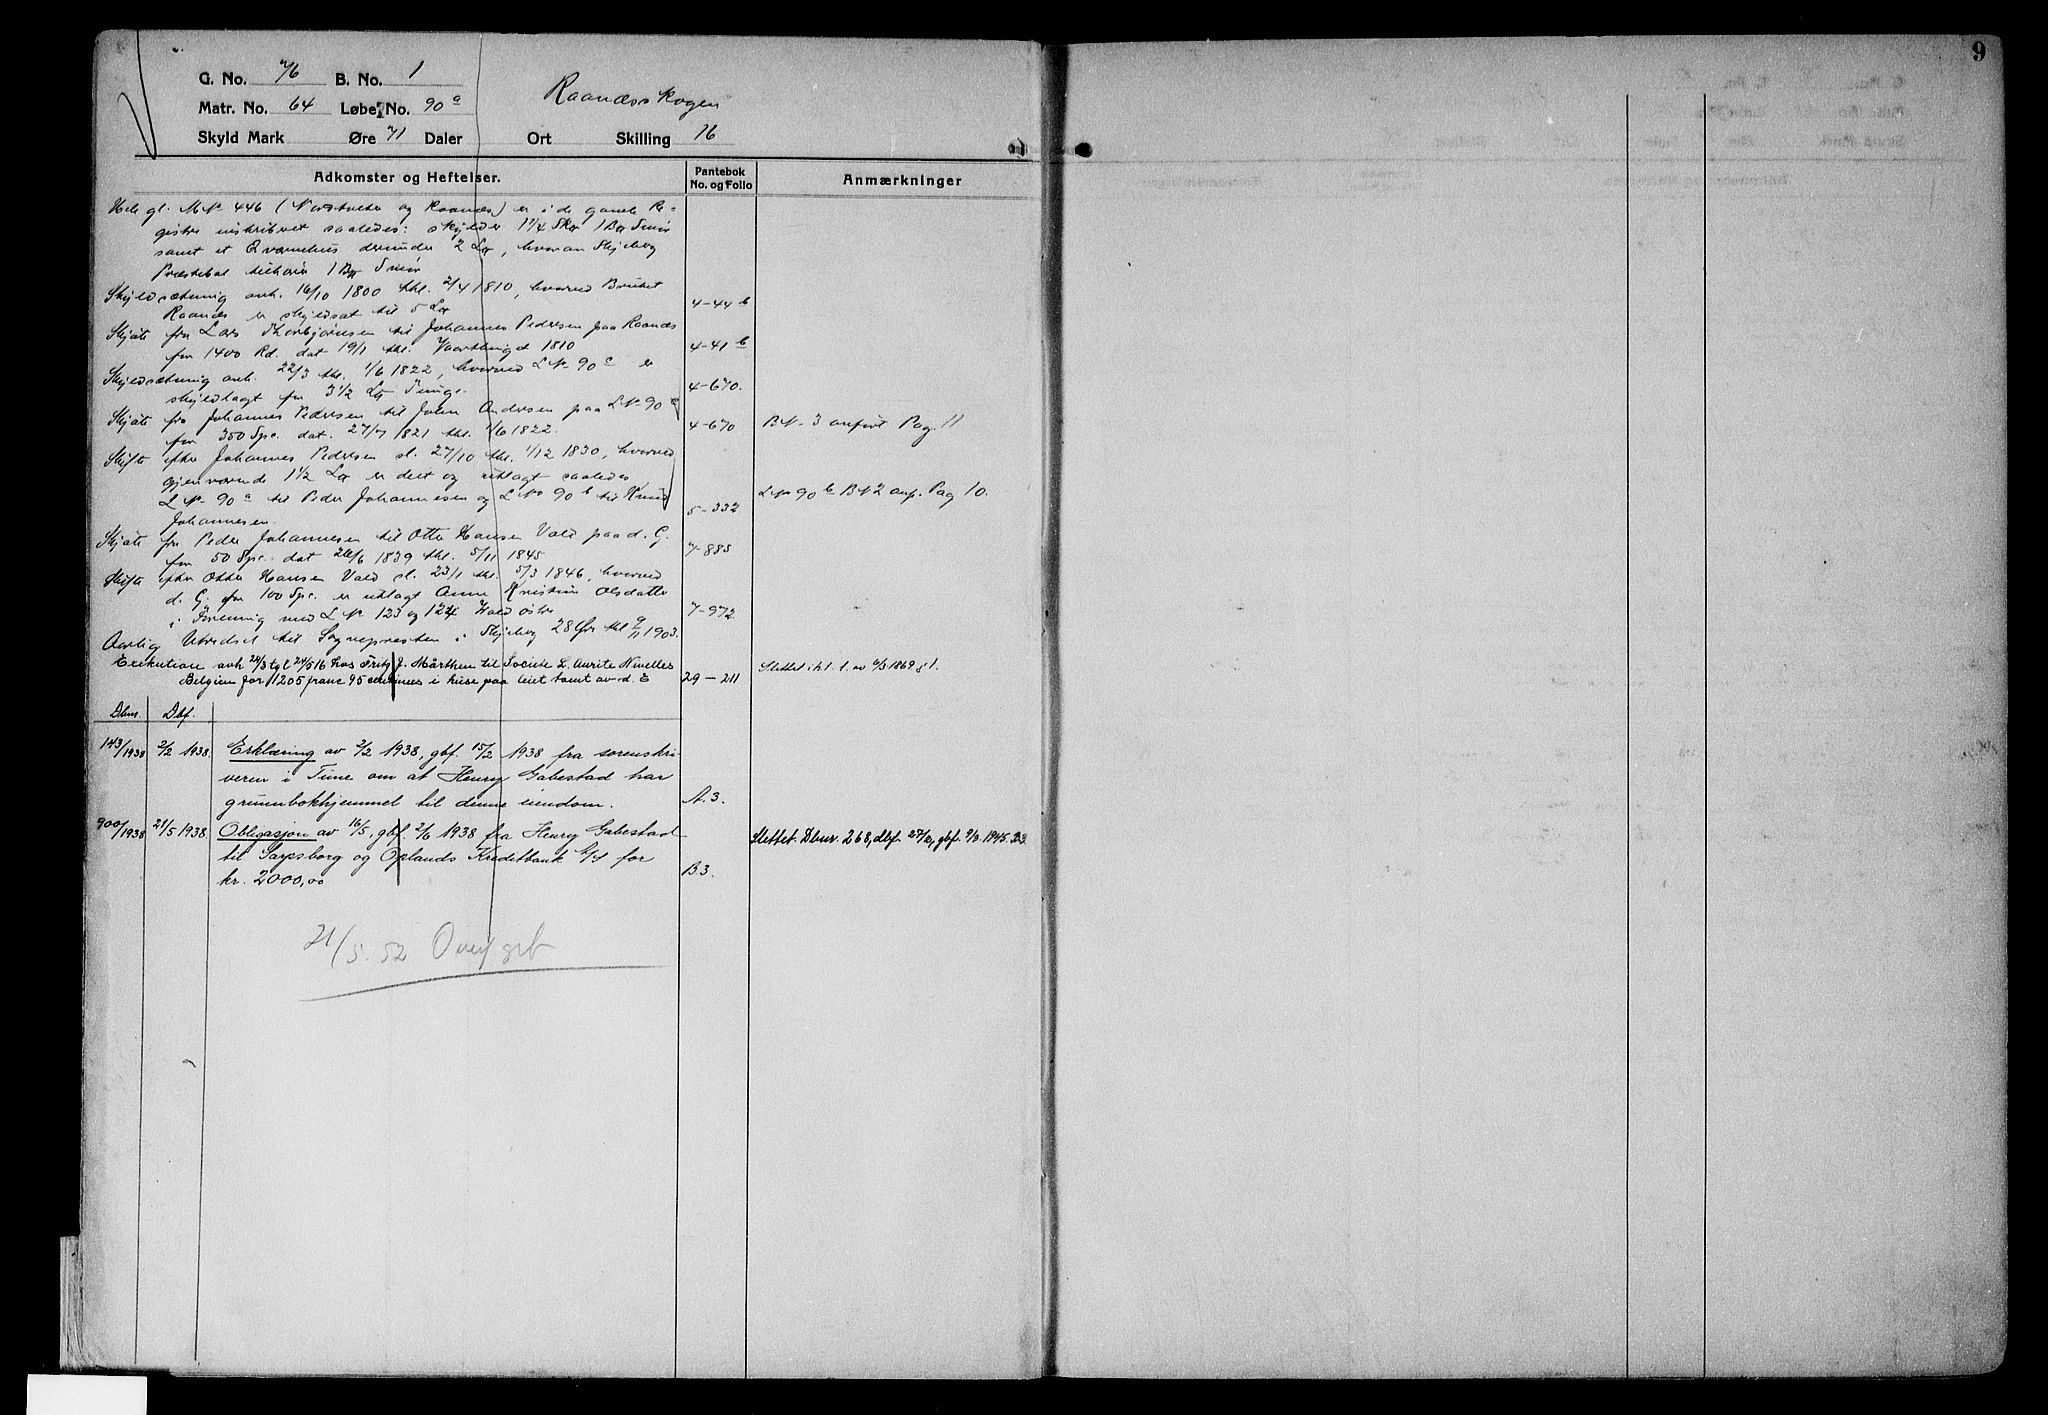 9
G. No. 76 B. No. 1
Matr. No. 64 Løbe No. 90 a Raanæsskogen
Skyld Mark Øre 71 Daler Ort Skilling 16
Adkomster og Heftelser. Pantebok No. og Folio Anmærkninger
Hele gl. M No 446 ( og Raanæs) er i de gamle Re-
gistre inskribert saaledes: skylder 1 1/4 Skp 1 Bp Smør
samt et Qværnehus derunder 2 Lp, hvoran Skjeberg
Præstebol tilhører 1 Bp Smør
Skyldsætning avh. 16/10 1800 thl. 2/4 1810, hvorved Bruket
Raanæs er skyldsat til 5 Lp 4-44 b
Skjøte fra Lars Thorbjørnsen til Johannes Pedersen paa Raanæs
for 1400 Rd. dat 19/1 thl. Vaarthinget 1810 4-41 b
Skyldsætning avh. 22/3 thl. 1/6 1822, hvorved L No 90 c er
skyldlagt for 3 1/2 Lp Tunge. 4-670.
Skjøte fra Johannes Pedersen til John Andersen paa L No 90 c
for 350 Spc. dat. 27/7 1821 thl. 1/6 1822. 4-670 B No 3 anført Pag. 11
Skifte efter Johannes Pedersen sl. 27/10 thl. 1/12 1830, hvorved
gjenværende 1 1/2 Lp er delt og utlagt saaledes
L No 90 a til Peder Johannesen og L No 90 b til Knud L No 90 b B N 2 anf. Pag 10.
Johannesen. 5-332
Skjøte fra Peder Johannesen til Otter Hansen Vold paa d. G.
for 50 Spc. dat 26/6 1839 thl. 5/11 1845 7-885
Skifte efter Otter Hansen Vold sl. 23/1 thl. 5/3 1846, hvorved
d. G. for 100 Spc. er utlagt Anne Kristine Olsdatter
i Forening med L No 123 og 124 Vold østre 7-972
Aarlig Utredsel til Sognepresten i Skjeberg 28 Øre thl 9/11 1903.
Exekution avh 24/3 tgl 24/5 16 hos Fritz J. Märthen til Societe L. Aurite Nivelles Slettet i h. t. l. av 6/3 1869 § 1.
Belgien for 1205 franc 95 centimes i huse paa leiet tomt av d. E 29-211
Dbnr. Dbf.
143/1938 2/2 1938. Erklæring av 2/2 1938, gbf. 15/2 1938 fra sorenskri-
veren i Tune om at Henry Gabestad har
grunnbokhjemmel til denne eiendom. A. 3.
900/1938 21/5 1938. Obligasjon av 16/5, gbf. 2/6 1938 fra Henry Gabestad Slettet. Dbnr. 268, dbf. 27/2, gbf. 9/3 1945. B3
til Sarpsborg og Oplands Kreditbank A/S for
kr. 2000,00 B.3.
21/5. 52 Overf grb